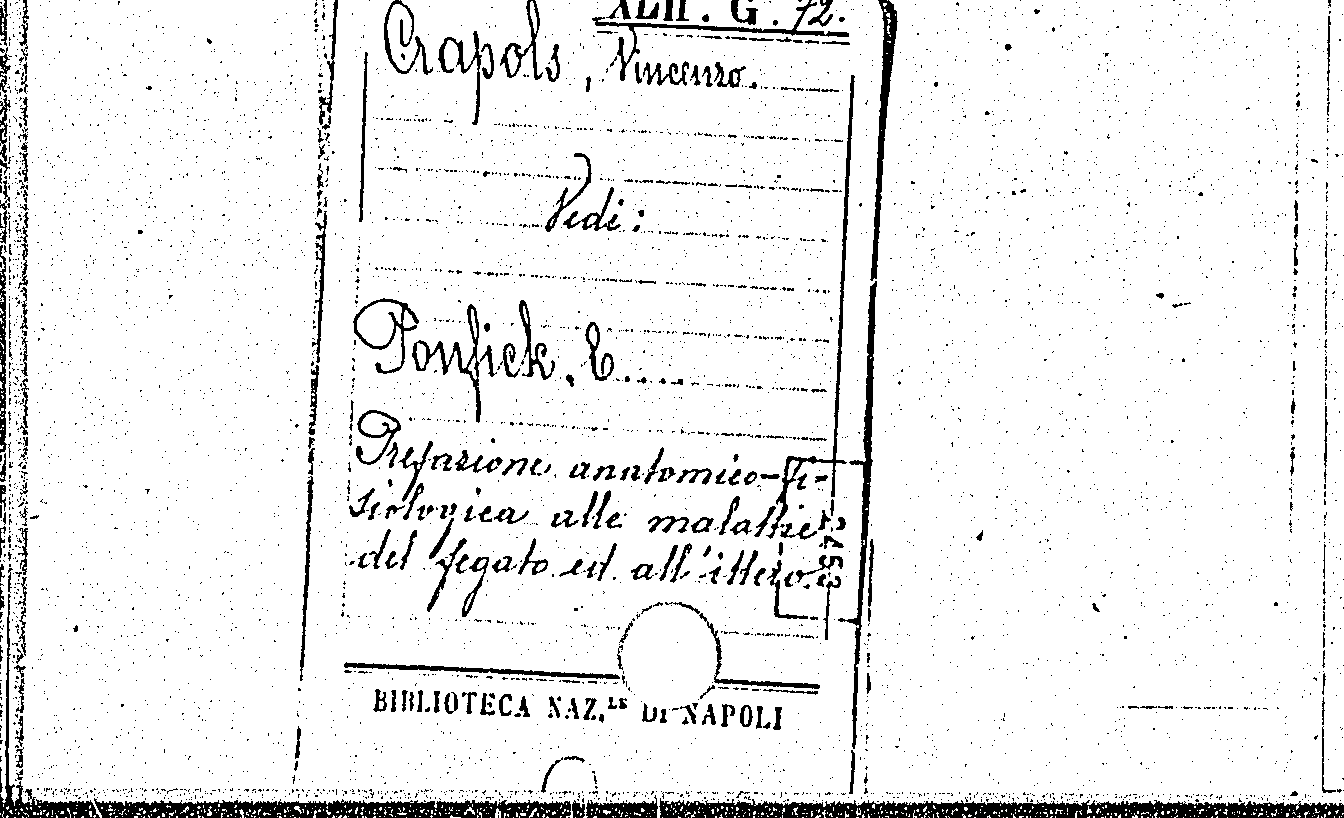 XLII. G. 72.
Crapols, Vincenzo.
Vedi:
Ponfick. E....
Prefazione anatomico-fi-
siologica alle malattie
del fegato ed all'ittero.
BIBLIOTECA NAZ.LE DI NAPOLI